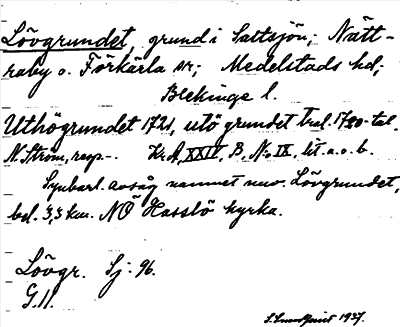 Lövgrundet, grund i Saltsjön; Nätt-
raby o. Förkärla sr; Medelstads hd;
Blekinge l.
Uthögrundet 1721, utö grundet trol. 1780-tal.
N. Ström, resp.-. Kr.A, XXIV, B, No IX, lit. a. o. b.
Synbarl. avsåg namnet nuv. Lövgrundet,
bel. 3,3 km. NÖ Hasslö kyrka.
Lövgr. Sj. 96.
G.11.
1937.